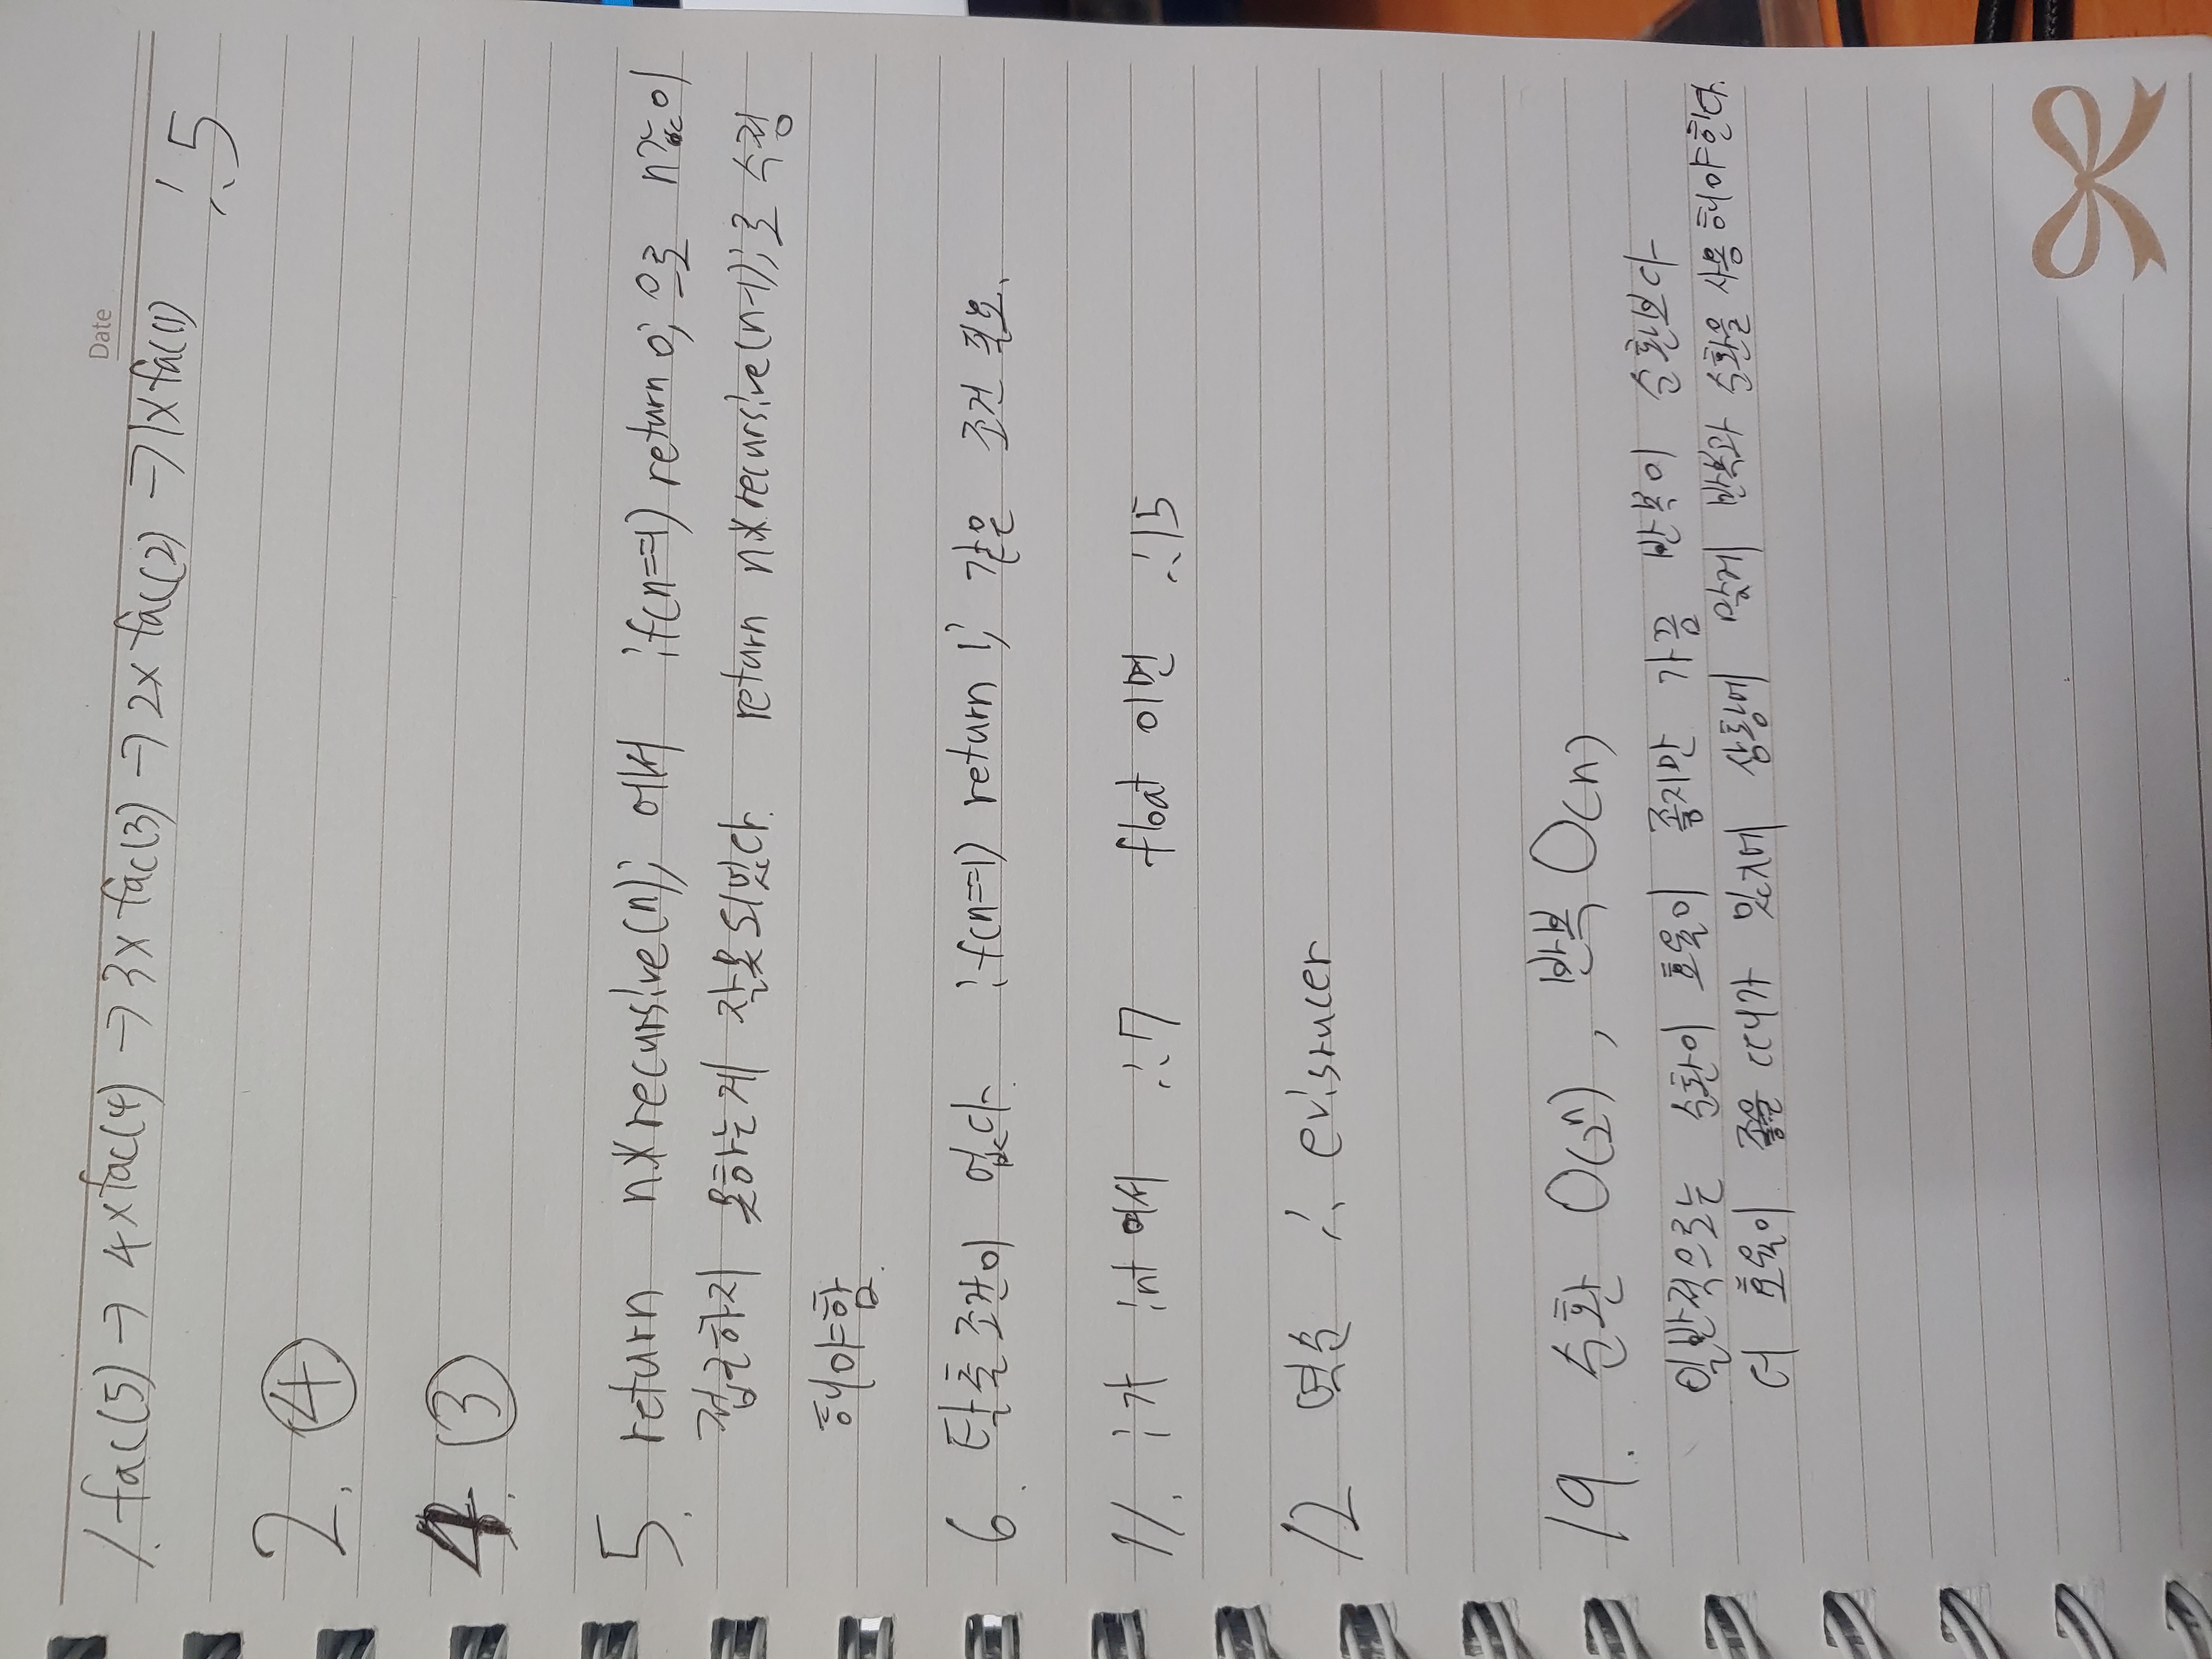 Date
1. fac(5) → 4×fac(4) → 3×fac(3) → 2×fac(2) → 1×fac(1) ∴ 5
2. ④
4. ③
5. return n*recursive(n); 에서 if(n==1) return 0; 으로 n값이
접근하지 못하는게 잘못되었다. return n*recursive(n-1);로 수정
해야함.
6. 탈출조건이 없다. if(n==1) return 1; 같은 조건 필요.
11. i가 int여서 ∴ 7 float 이면 ∴ 15
12 역순 ∴ evisrucer
19. 순환 O(2ⁿ), 반복 O(n)
일반적으로는 순환이 효율이 좋지만 가끔 반복이 순환보다
더 효율이 좋을 때가 있기에 상황에 맞게 반복과 순환을 사용해야한다.